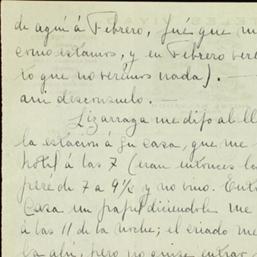 de aquí á Febrero, fué que nu
como estamos, y en Febrero vere
lo que no verémos nada). —
mi desconsuelo. —
Lizarraga me dijo al ll
la estación á su casa, que me
hotel á las 7 (eran entonces la
peré de 7 a 9½ y no vino. Entó
casa un papel diciéndole me
á las 11 de la noche; el criado me
ba ahí, pero no quise entrar